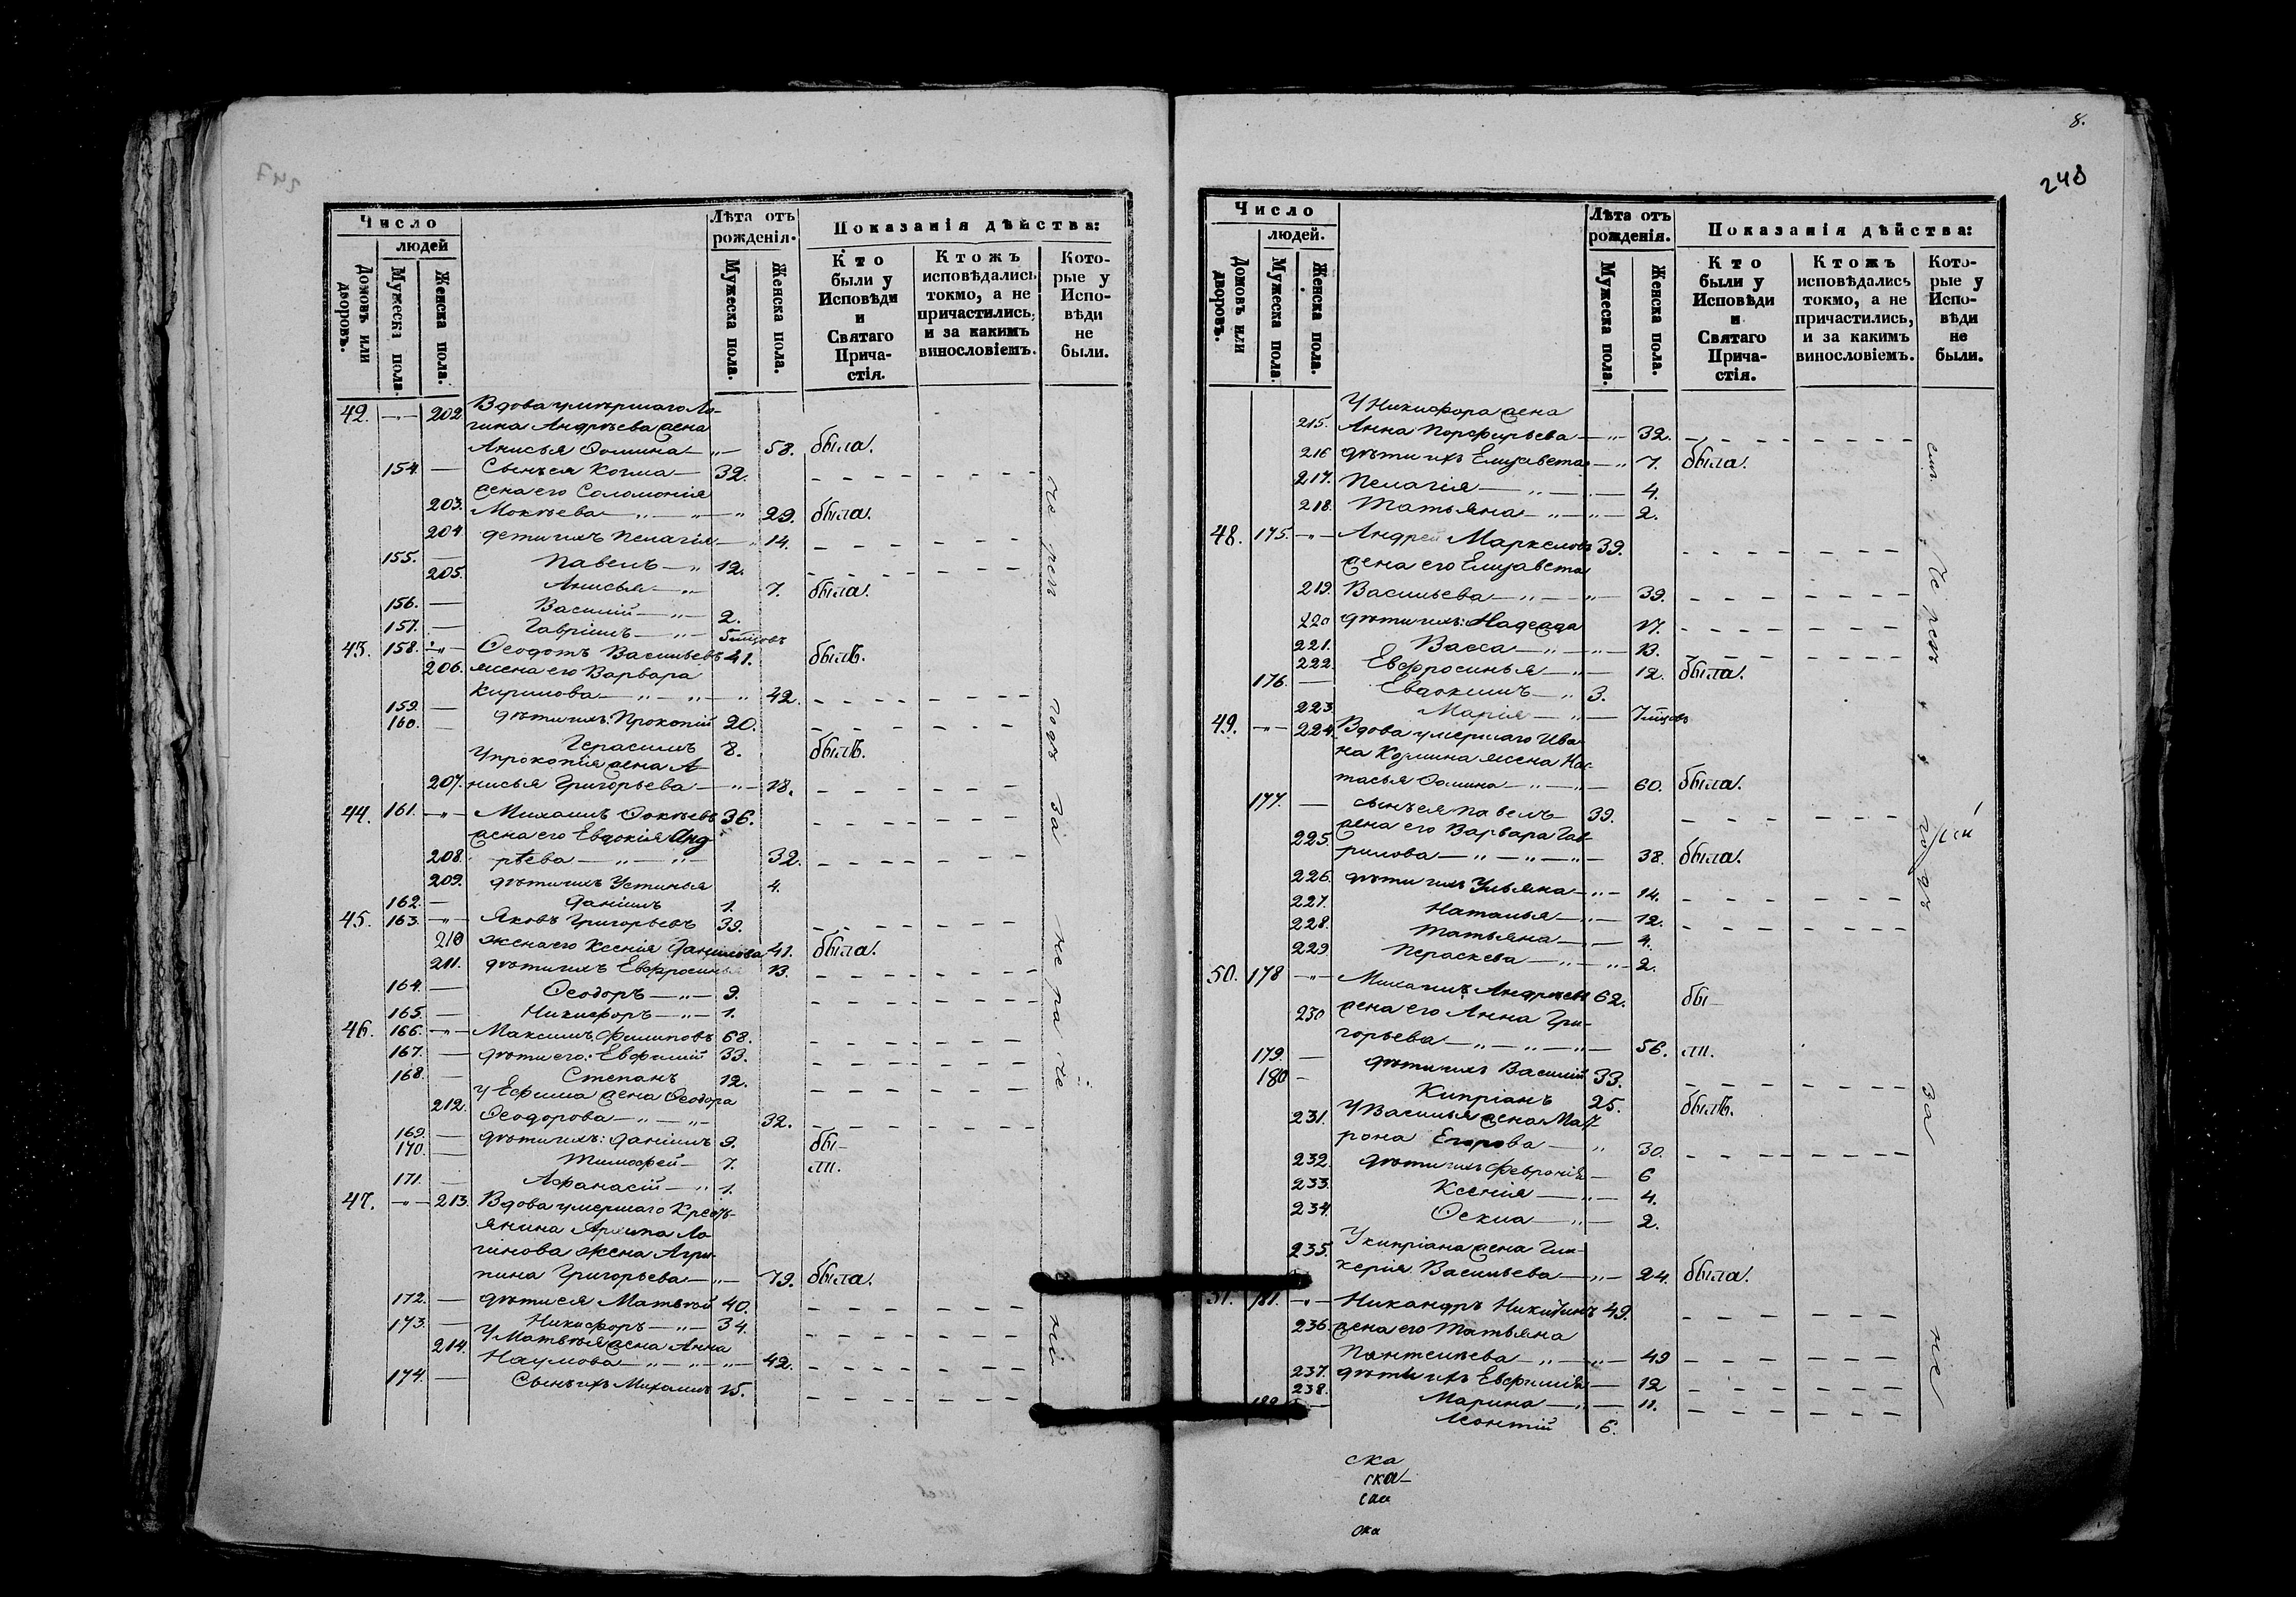 247
Число
людей
Домовъ или дворовъ.
Мужеска пола.
Женска пола.
Лѣта отъ рожденія.
Мужеска пола.
Женска пола.
Показанія дѣйства:
Кто были у Исповѣди и Святаго Прича-стія.
Ктожъ исповѣдались токмо, а не причастились, и за какимъ винословіемъ.
Кото-рые у Испо-вѣди не были.
42. —"— 202. Вдова умершаго Ло-
гина Андреева жена
Анисья Ѳомина —"— 58. была.
154. — Сынъ ея Козма — 32.
жена его Соломонія
203. Мокѣева —"—"—" 29. была.
204. дети ихъ Пелагія —" 14.
155. — Павелъ —" 12.
205. Анисья —"— 7. была.
156. — Василій —"— 2.
157. — Гавріилъ —"— 5 мцовъ
43. 158. —"— Ѳеодотъ Васильевъ 41. былъ.
206. жена его Варвара
Кирилова —"—"—" 42.
159. — дѣти ихъ Прокопій 20.
160. — Герасимъ 8. былъ.
У Прокопія жена А-
207. нисья Григорьева —"— 18.
44. 161. —"— Михаилъ Ѳокѣевъ 36.
жена его Евдокія Анд-
208. рѣева —"—"— 32.
209. дѣти ихъ Устинья 4.
162. — Даніилъ 1.
45. 163. —"— Яковъ Григорьевъ 39.
210 жена его Ксенія Данилова 41. была.
211. дѣти ихъ Евфросинья 13.
164. — Ѳеодоръ —"— 9.
165. — Никифоръ —"— 1.
46. 166. —"— Максимъ Филиповъ 68.
167. — дѣти его: Евфимій 33.
168. — Степанъ 12.
У Ефима жена Ѳеодора
212. Ѳеодорова —"—"— 32.
169. — дѣти ихъ: Даніилъ 9. бы-
170. — Тимофей — 7. ли.
171. — Афанасій —" 1.
47. —"— 213. Вдова умершаго Крест-
янина Архипа Ло-
гинова жена Агри-
пина Григорьева —"— 79. была.
172. — дѣти ея Матвей 40.
173. — Никифоръ —"— 34.
У Матвѣя жена Анна
214. Наумова —"—"—"— 42.
174. — Сынъ ихъ Михаилъ 15.
8.
248
Число
людей.
Домовъ или дворовъ.
Мужеска пола.
Женска пола.
Лѣта отъ рожденія.
Мужеска пола.
Женска пола.
Показанія дѣйства:
Кто были у Исповѣди и Святаго Прича-стія.
Ктожъ исповѣдались токмо, а не причастились, и за какимъ винословіемъ.
Кото-рые у Испо-вѣди не были.
У Никифора жена
215. Анна Порфирьева —"— 32.
216 дѣти ихъ Елизавета —" 7. была.
217. Пелагія —"— 4.
218. Татьяна —"—"— 2.
48. 175. —"— Андрей Маркеловъ 39.
жена его Елизавета
219. Васильева —"—"— 39.
220 дѣти ихъ: Надежда 17.
221. Васса —"—"— 13.
222. Евфросинья —"— 12. была.
176. — Евдокимъ —" 3.
223. Марія —"— 7 мцовъ
49. —"— 224. Вдова умершаго Ива-
на Козмина жена Нас-
тасья Ѳомина —"—"— 60. была.
177. — сынъ ея Павелъ 39.
жена его Варвара Гав-
225. рилова —"—"—"— 38. была.
226. дѣти ихъ Ульяна —"— 14.
227. Наталья —"— 12.
228. Татьяна —"— 4.
229. Параскева —"—"— 2.
50. 178 —"— Михаилъ Андреевъ 62. бы-
жена его Анна Гри-
230 горьева —"—"—"— 56. ли.
179. — дѣти ихъ Василій 33.
180 — Кипріанъ 25. былъ.
У Василья жена Мат-
231. рона Егорова —" 30.
232. дѣти ихъ Февронія — 6
233. Ксенія —"— 4.
234. Ѳекла —"— 2.
У Кипріана жена Гли-
235. керія Васильева —"— 24. была.
51. 181. —"— Никандръ Никитинъ 49.
236. жена его Татьяна
Пантелѣева —"—"— 49
237. дѣти ихъ Евфимія — 12
238. Марина —"— 11.
Леонтій 6.
ска
ска-
ока